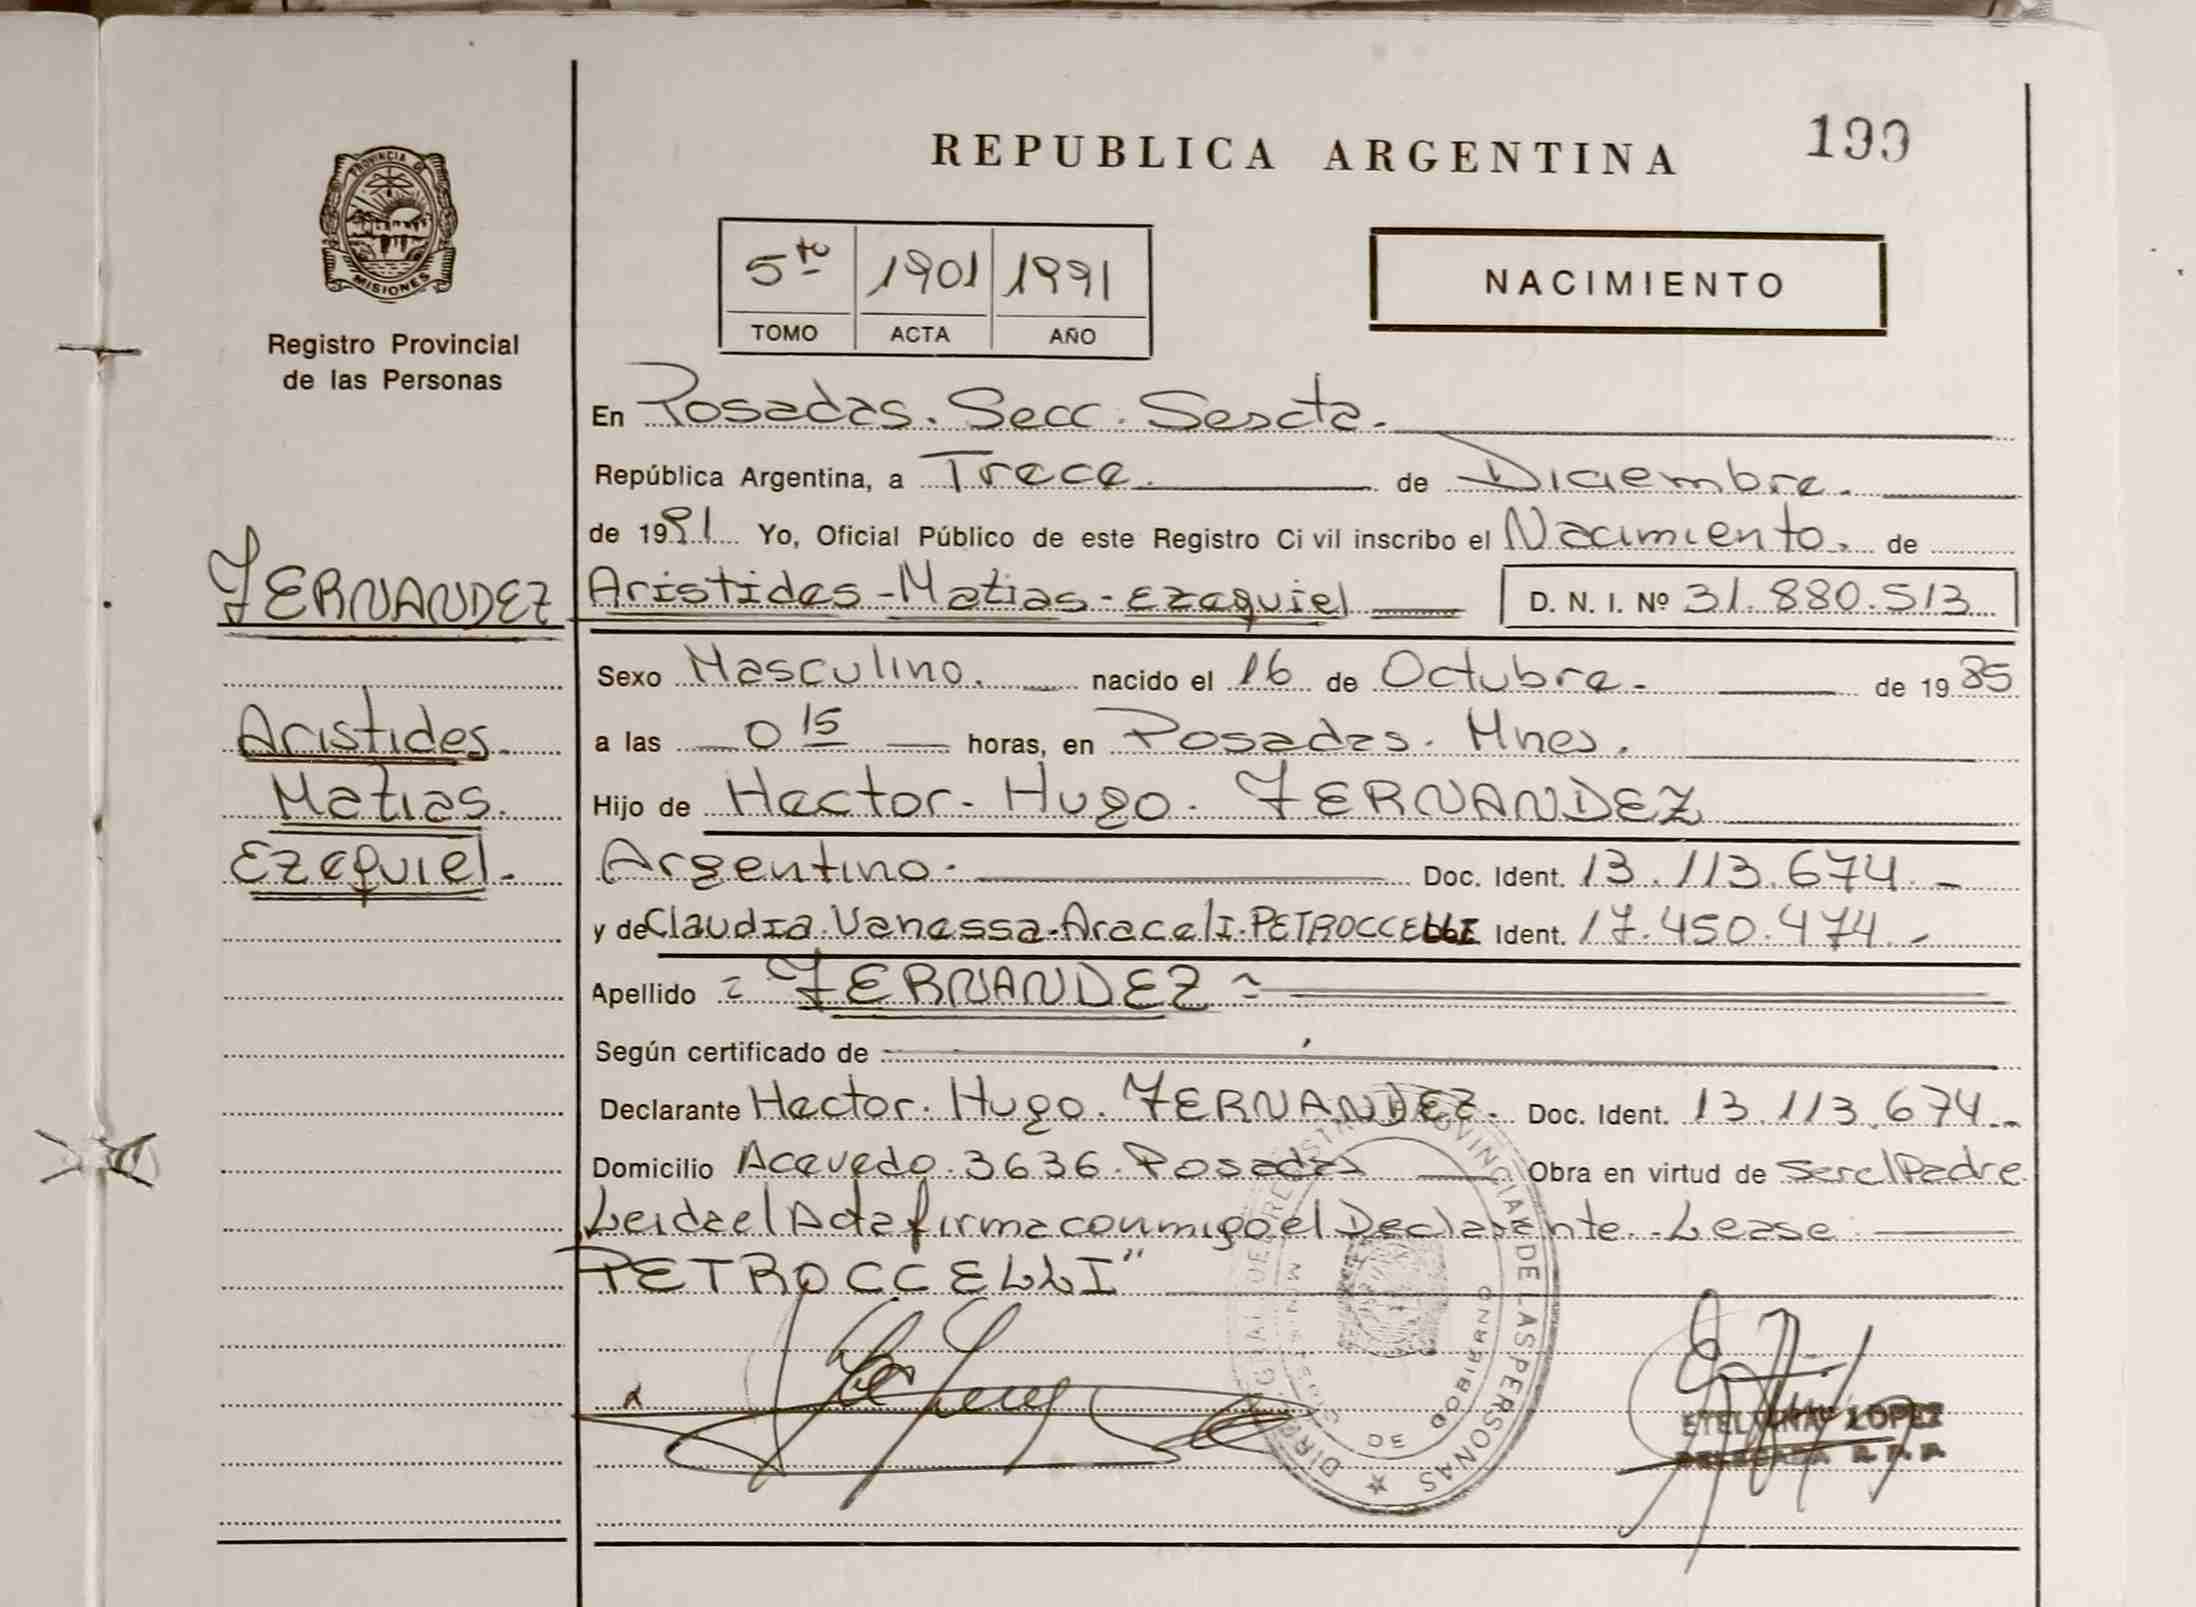 REPUBLICA ARGENTINA
199
PROVINCIA DE
MISIONES
Registro Provincial
de las Personas
5to 1901 1991
TOMO ACTA AÑO
NACIMIENTO
En Posadas. Secc. Sescta.
República Argentina, a Trece. de Diciembre.
de 1991 Yo, Oficial Público de este Registro Ci vil inscribo el Nacimiento. de
FERNANDEZ Aristides - Matias - Ezequiel D. N. I. Nº 31.880.513
Sexo Masculino. nacido el 16 de Octubre. de 1985
Aristides.
a las 0 15 horas, en Posadas. Mnes.
Matias.
Hijo de Hector. Hugo. FERNANDEZ
Ezequiel.
Argentino. Doc. Ident. 13.113.674.-
y de Claudia. Vanessa. Araceli. PETROCCELLI Ident. 17.450.474.-
Apellido = FERNANDEZ =
Según certificado de
Declarante Hector. Hugo. FERNANDEZ. Doc. Ident. 13.113.674.-
Domicilio Acevedo. 3636. Posadas Obra en virtud de Ser el Padre
Leida el Acta firma conmigo el Declarante. Lease
PETROCCELLI"
PROVINCIAL DE LAS PERSONAS
DE GOBIERNO
LOPEZ